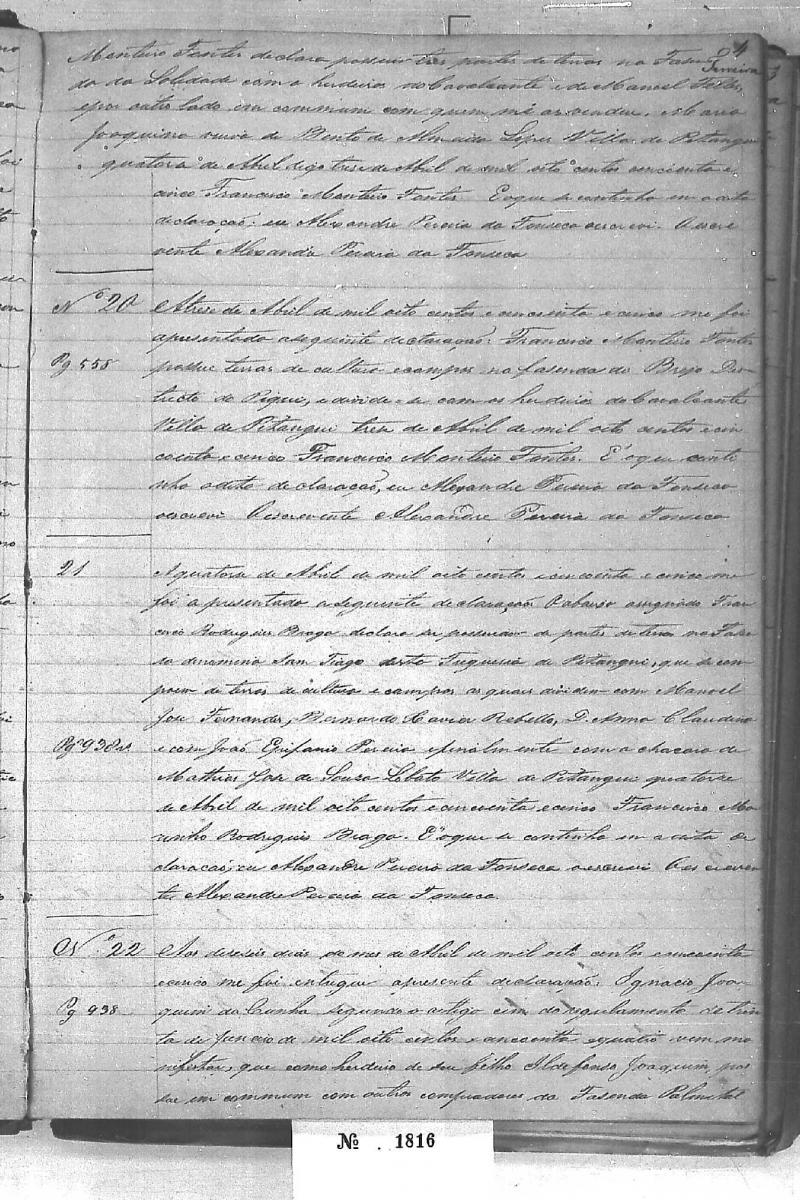 4
Ferreira
Monteiro Fontes declara possuir tres partes de terras na Fasen
da da Soledade com o herdeiros do Cavalcante e de Manoel
e por outro lado em commum com quem m'as vendeu, Maria
Joaquina viuva de Bento de Almeida Lopes Villa de Pitangui
quatorse de Abril digo trese de Abril de mil oito centos cencoenta e
cinco Francisco Monteiro Fontes. E o que se continha em a dita
declaração: eu Alexandre Pereira da Fonseca o escrevi. O escre
vente Alexandre Pereira da Fonseca
Nº 20
A trese de Abril de mil oito centos e cencoenta e cinco me foi
apresentado a seguinte declaração: Francisco Monteiro Fontes
Pg 558
possue terras de cultura e campos na fasenda do Brejo Des
tricto do Piqui, e divide-se com os herdeiros do Cavalcante
Villa de Pitangui trese de Abril de mil oito centos e cin
coenta e cinco Francisco Monteiro Fontes. E o que conti
nha a dita declaração, eu Alexandre Pereira da Fonseca
o escrevi O escrevente Alexandre Pereira da Fonseca
21
A quatorse de Abril de mil oito centos e cencoenta e cinco me
foi apresentado a seguinte declaração O abaixo assignado Fran
cisco Rodrigues Braga declara ser possuidor de partes de terras na Fasen
da denomina San Tiago desta Freguesia de Pitangui, que se com
poem de terras de cultura e campos as quais dividem com Manoel
José Fernandes, Bernardo Xavier Rebello, D. Anna Claudina
Pg 938
e com João Epifanio Pereira e finalmente com a chacara de
Mathias José de Sousa Lobato Villa de Pitangui quatorse
de Abril de mil oito centos e cencoenta e cinco Francisco Ma
rinho Rodrigues Braga. E o que se continha em a dita de
claração, eu Alexandre Pereira da Fonseca o escrevi O escreven
te Alexandre Pereira da Fonseca.
Nº 22
Aos deseseis dias do mes de Abril de mil oito centos e cencoenta
e cinco me foi entregue a presente declaração: Ignacio Joa
Pg 938
quim da Cunha segundo o artigo cem do regulamento de trin
ta de Janeiro de mil oito centos e cencoenta e quatro vem ma
nifestar, que como herdeiro de seu filho Ildefonso Joaquim, pos
sue em commum com outros compradores da Fasenda Palmital
№ . 1816